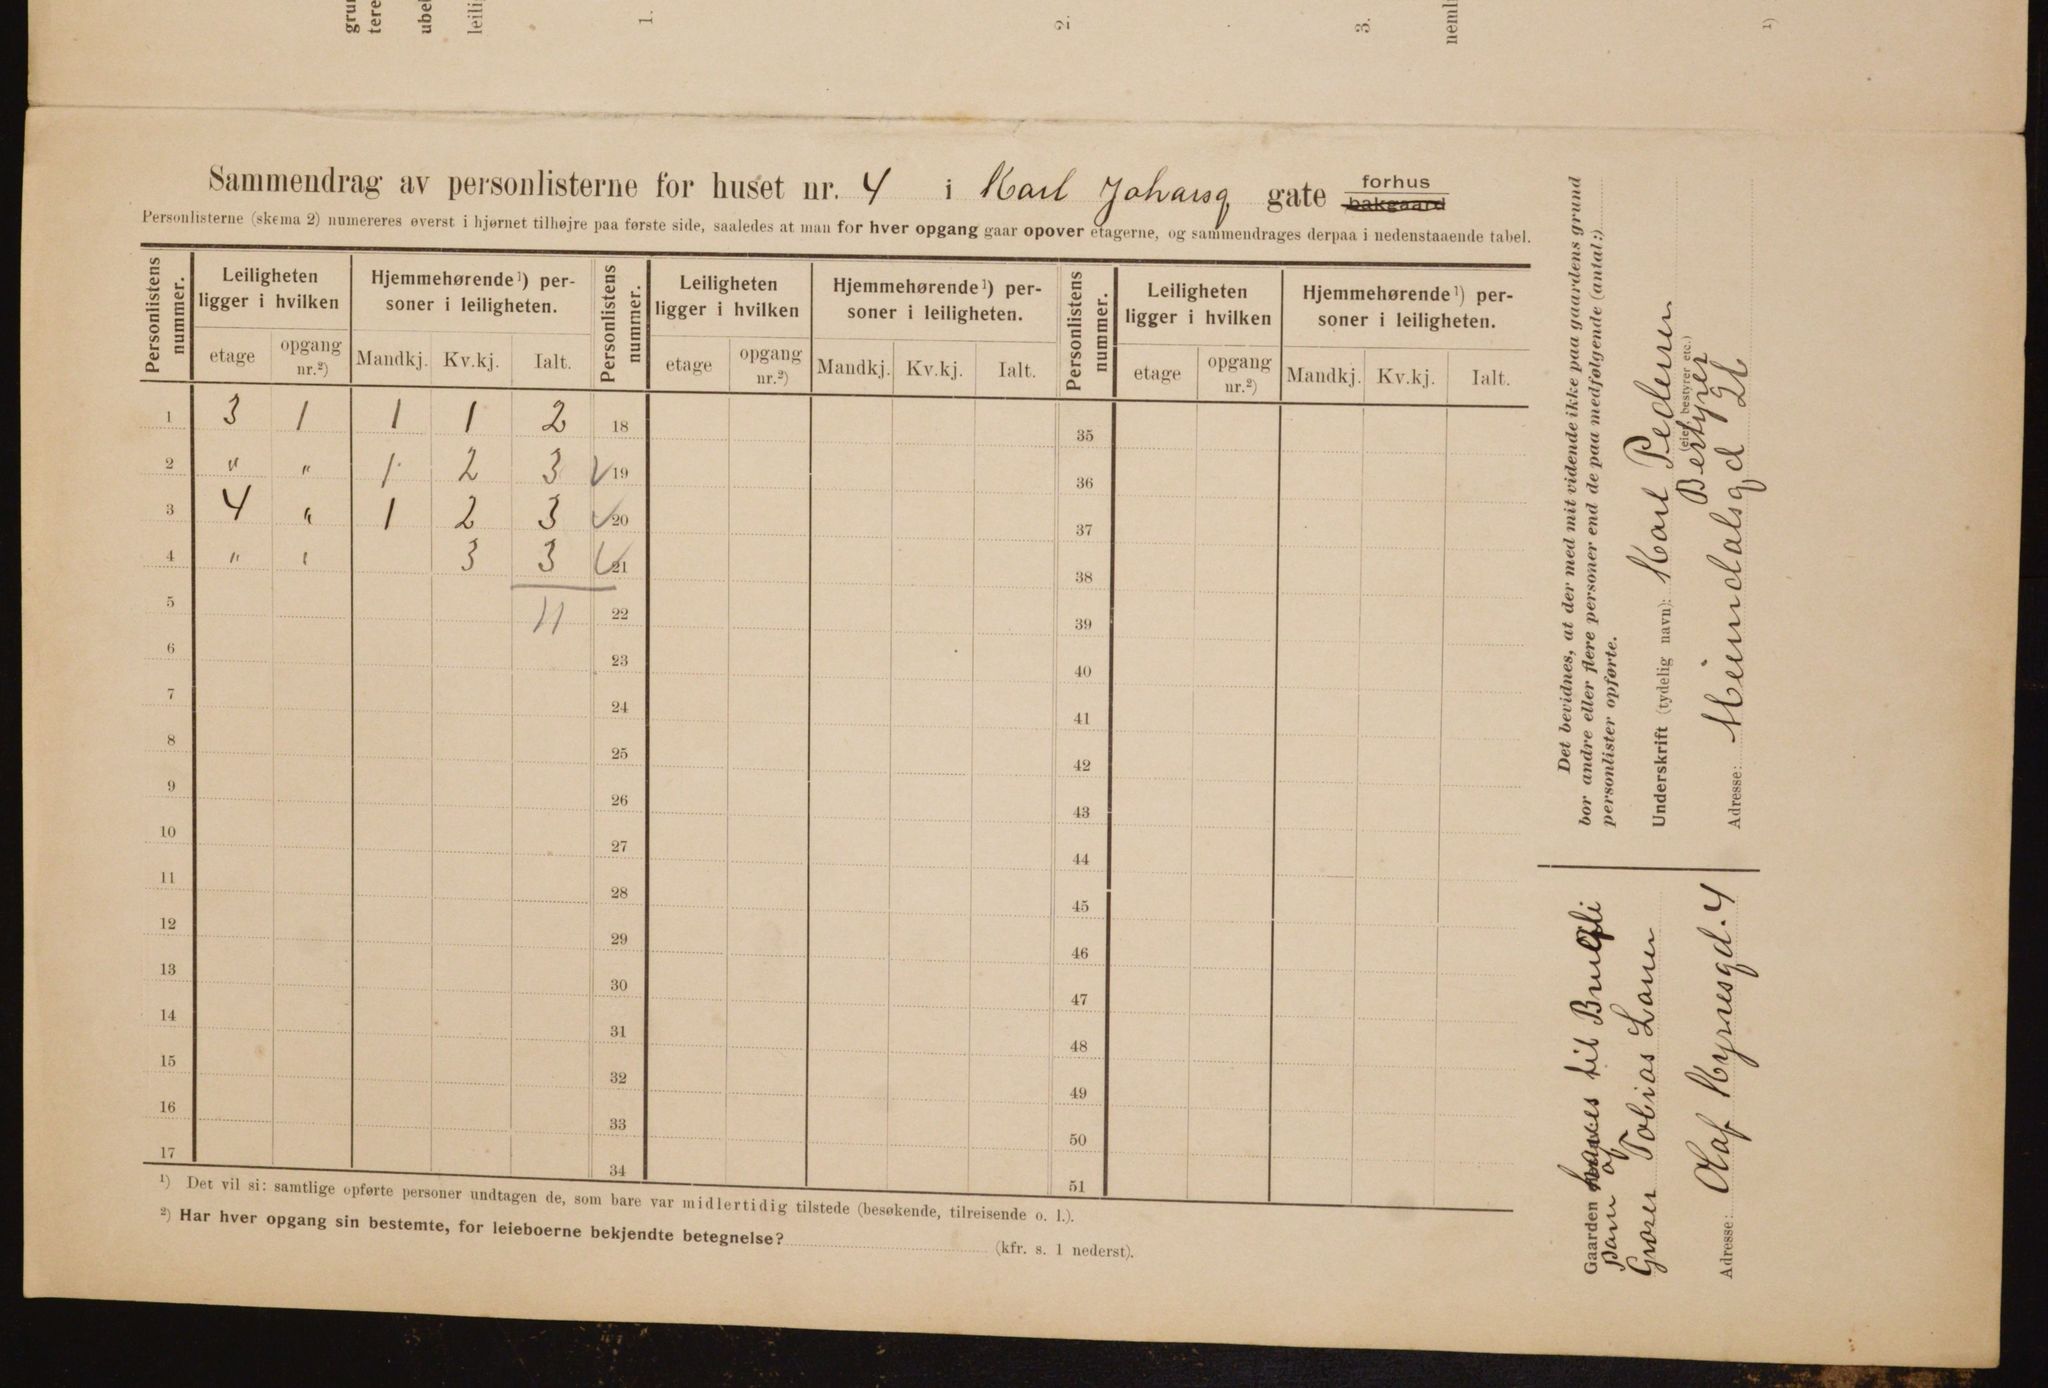 grun
tere
ube
leilig
1.
2.
3.
neml
1)
Sammendrag av personlisterne for huset nr. 4 i Karl Johansg gate forhus
bakgaard
Personlisterne (skema 2) numereres øverst i hjørnet tilhøjre paa første side, saaledes at man for hver opgang gaar opover etagerne, og sammendrages derpaa i nedenstaaende tabel.
Personlistens nummer. Leiligheten ligger i hvilken Hjemmehørende ¹) personer i leiligheten. Personlistens nummer. Leiligheten ligger i hvilken Hjemmehørende ¹) personer i leiligheten. Personlistens nummer. Leiligheten ligger i hvilken Hjemmehørende ¹) personer i leiligheten.
etage opgang nr.²) Mandkj. Kv.kj. Ialt. etage opgang nr.²) Mandkj. Kv.kj. Ialt. etage opgang nr.²) Mandkj. Kv.kj. Ialt.
1 3 1 1 1 2 18 35
2 " " 1 2 3 19 36
3 4 " 1 2 3 20 37
4 " " 3 3 21 38
5 11 22 39
6 23 40
7 24 41
8 25 42
9 26 43
10 27 44
11 28 45
12 29 46
13 30 47
14 31 48
15 32 49
16 33 50
17 34 51
¹) Det vil si: samtlige opførte personer undtagen de, som bare var midlertidig tilstede (besøkende, tilreisende o. l.).
²) Har hver opgang sin bestemte, for leieboerne bekjendte betegnelse? (kfr. s. 1 nederst).
Det bevidnes, at der med mit vidende ikke paa gaardens grund
bor andre eller flere personer end de paa medfølgende (antal:)
personlister opførte.
Underskrift (tydelig navn): Karl Pedersen
(eier, bestyrer etc.)
Bestyrer
Adresse: Heimdalsgd 26
Gaarden haves til
af
Tobias
Adresse: Olaf Kyrresgd. 4